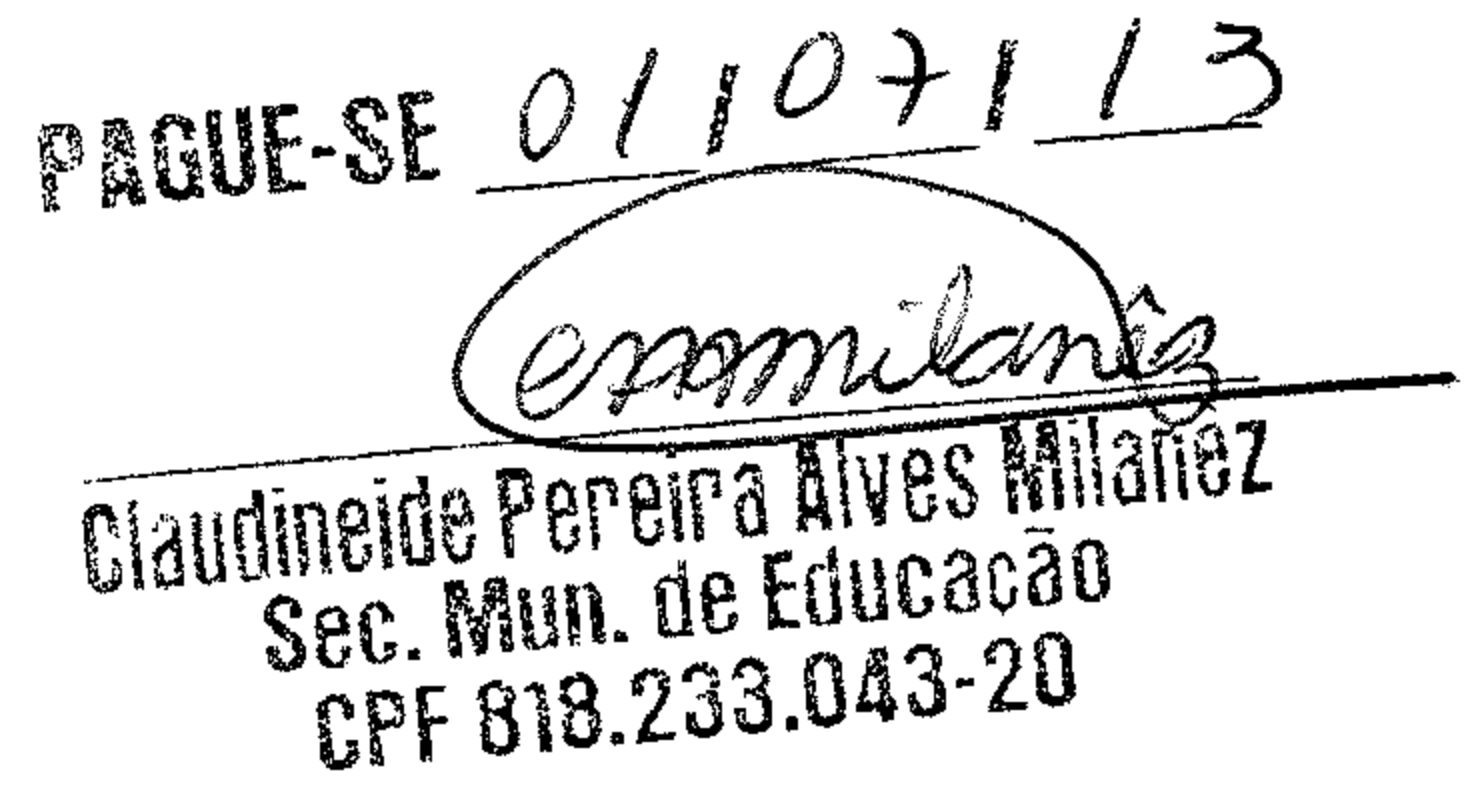 PAGUE-SE 01/07/13
Claudineide Pereira Alves Milanez
Sec. Mun. de Educação
CPF 818.233.043-20